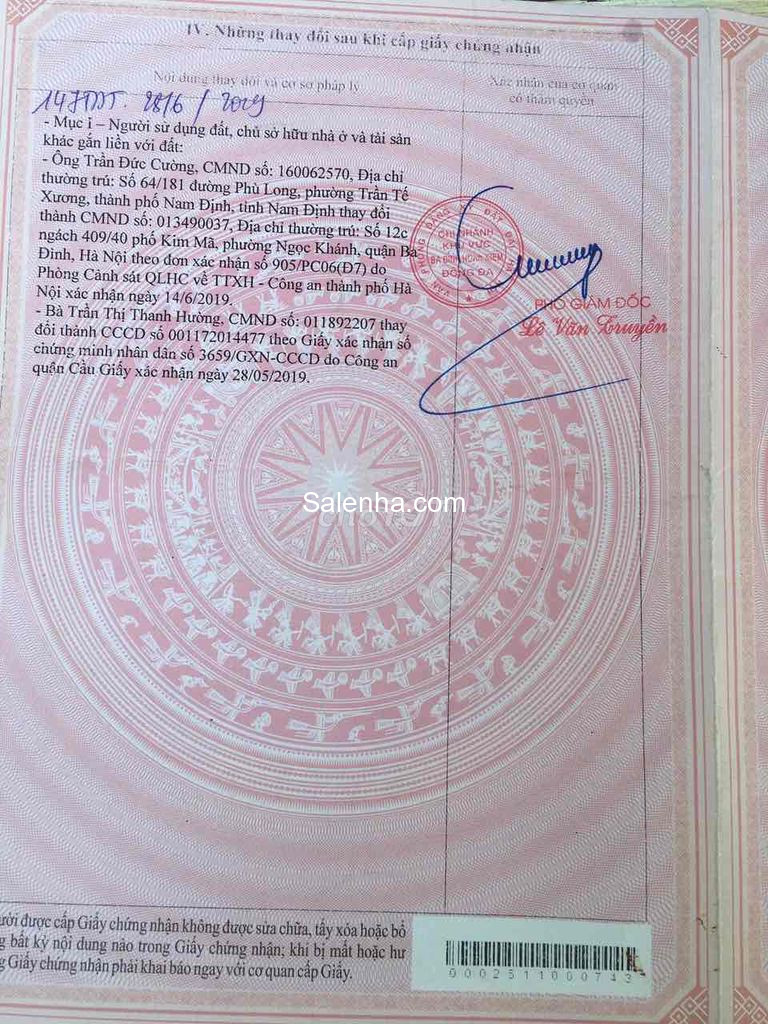 IV. Những thay đổi sau khi cấp giấy chứng nhận
Nội dung thay đổi và cơ sở pháp lý
Xác nhận của cơ quan
có thẩm quyền
28/6/2019
- Mục I – Người sử dụng đất, chủ sở hữu nhà ở và tài sản
khác gắn liền với đất:
- Ông Trần Đức Cường, CMND số: 160062570, Địa chỉ
thường trú: Số 64/181 đường Phù Long, phường Trần Tế
Xương, thành phố Nam Định, tỉnh Nam Định thay đổi
thành CMND số: 013490037, Địa chỉ thường trú: Số 12c
ngách 409/40 phố Kim Mã, phường Ngọc Khánh, quận Ba
Đình, Hà Nội theo đơn xác nhận số 905/PC06(Đ7) do
Phòng Cảnh sát QLHC về TTXH - Công an thành phố Hà
Nội xác nhận ngày 14/6/2019.
- Bà Trần Thị Thanh Hường, CMND số: 011892207 thay
đổi thành CCCD số 001172014477 theo Giấy xác nhận số
chứng minh nhân dân số 3659/GXN-CCCD do Công an
quận Cầu Giấy xác nhận ngày 28/05/2019.
VĂN PHÒNG ĐĂNG KÝ ĐẤT ĐAI
CHI NHÁNH
KHU VỰC
BA ĐÌNH-HOÀN KIẾM
ĐỐNG ĐA
PHÓ GIÁM ĐỐC
Lê Văn Truyền
Salenha.com
ười được cấp Giấy chứng nhận không được sửa chữa, tẩy xóa hoặc bổ
g bất kỳ nội dung nào trong Giấy chứng nhận; khi bị mất hoặc hư
g Giấy chứng nhận phải khai báo ngay với cơ quan cấp Giấy.
0002511000743